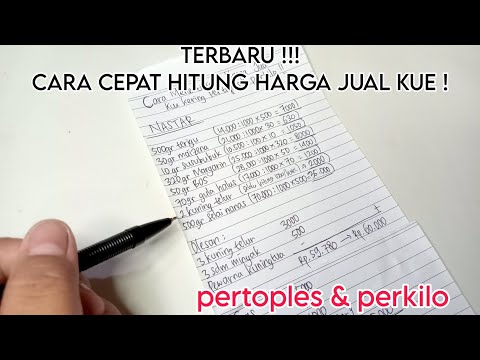 TERBARU !!!
CARA CEPAT HITUNG HARGA JUAL KUE !
Cara
Kue kering
NASTAR
500gr terigu (14.000 : 1000 x 500 = 7000)
30gr maizena (21.000 : 1000 x 30 = 630)
10gr susu bubuk (10.500 : 100 x 10 = 1050)
320gr Margarin (25.000 : 1000 x 320 = 8000)
50gr BOS (28.000 : 1000 x 50 = 1400)
70gr gula halus (17.000 : 1000 x 70 = 1200)
2 kuning telur
500gr selai nanas (70.000 : 1000 x 500 = 35.000)
Olesan :
3 kuning telur 3000
3 sdm minyak 500
Pewarna kuning tua
Rp. 59.780 → Rp. 60.000
pertoples & perkilo